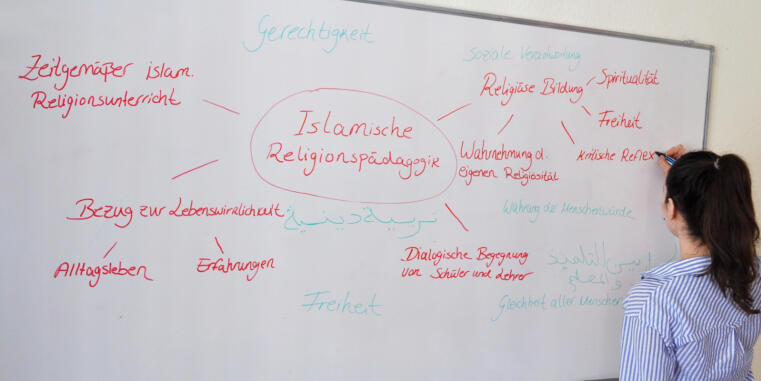 Gerechtigkeit
Soziale Verantwortung
Zeitgemäßer islam.
Religionsunterricht
Religiöse Bildung
Spiritualität
Freiheit
Kritische Reflex
Islamische
Religionspädagogik
Wahrnehmung d.
eigenen Religiosität
Bezug zur Lebenswirklichkeit
Alltagsleben
Erfahrungen
تربية دينية
Wahrung der Menschenwürde
Dialogische Begegnung
von Schüler und Lehrer
بين التلميذ
والمعلم
Freiheit
Gleichheit aller Menschen